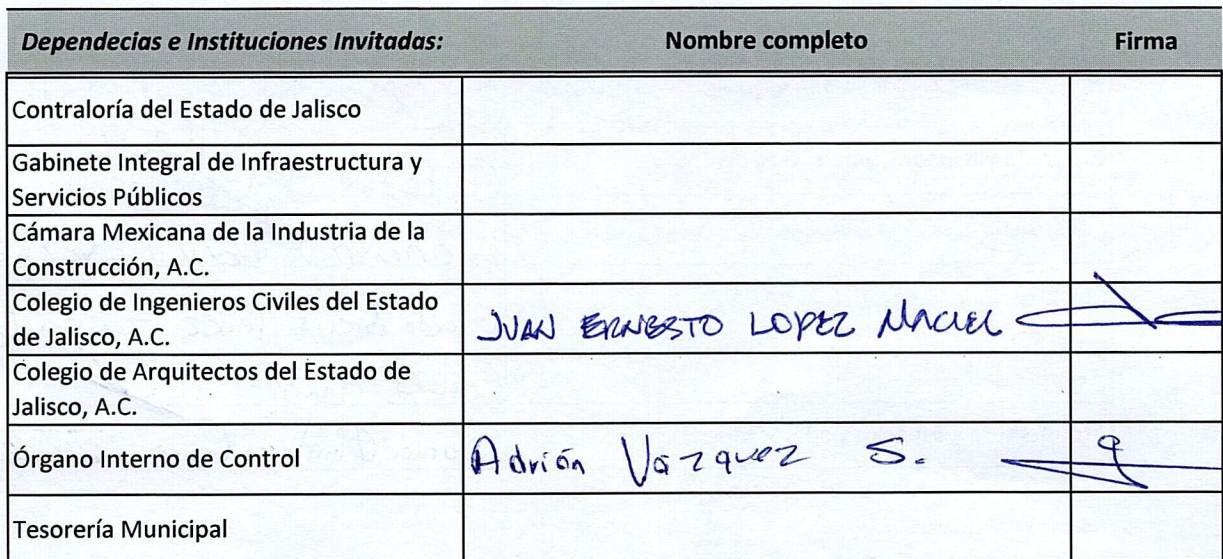 Dependecias e Instituciones Invitadas: Nombre completo Firma
Contraloría del Estado de Jalisco
Gabinete Integral de Infraestructura y
Servicios Públicos
Cámara Mexicana de la Industria de la
Construcción, A.C.
Colegio de Ingenieros Civiles del Estado
de Jalisco, A.C.
JUAN ERNESTO LOPEZ MACIEL
Colegio de Arquitectos del Estado de
Jalisco, A.C.
Órgano Interno de Control Adrián Vázquez S.
Tesorería Municipal